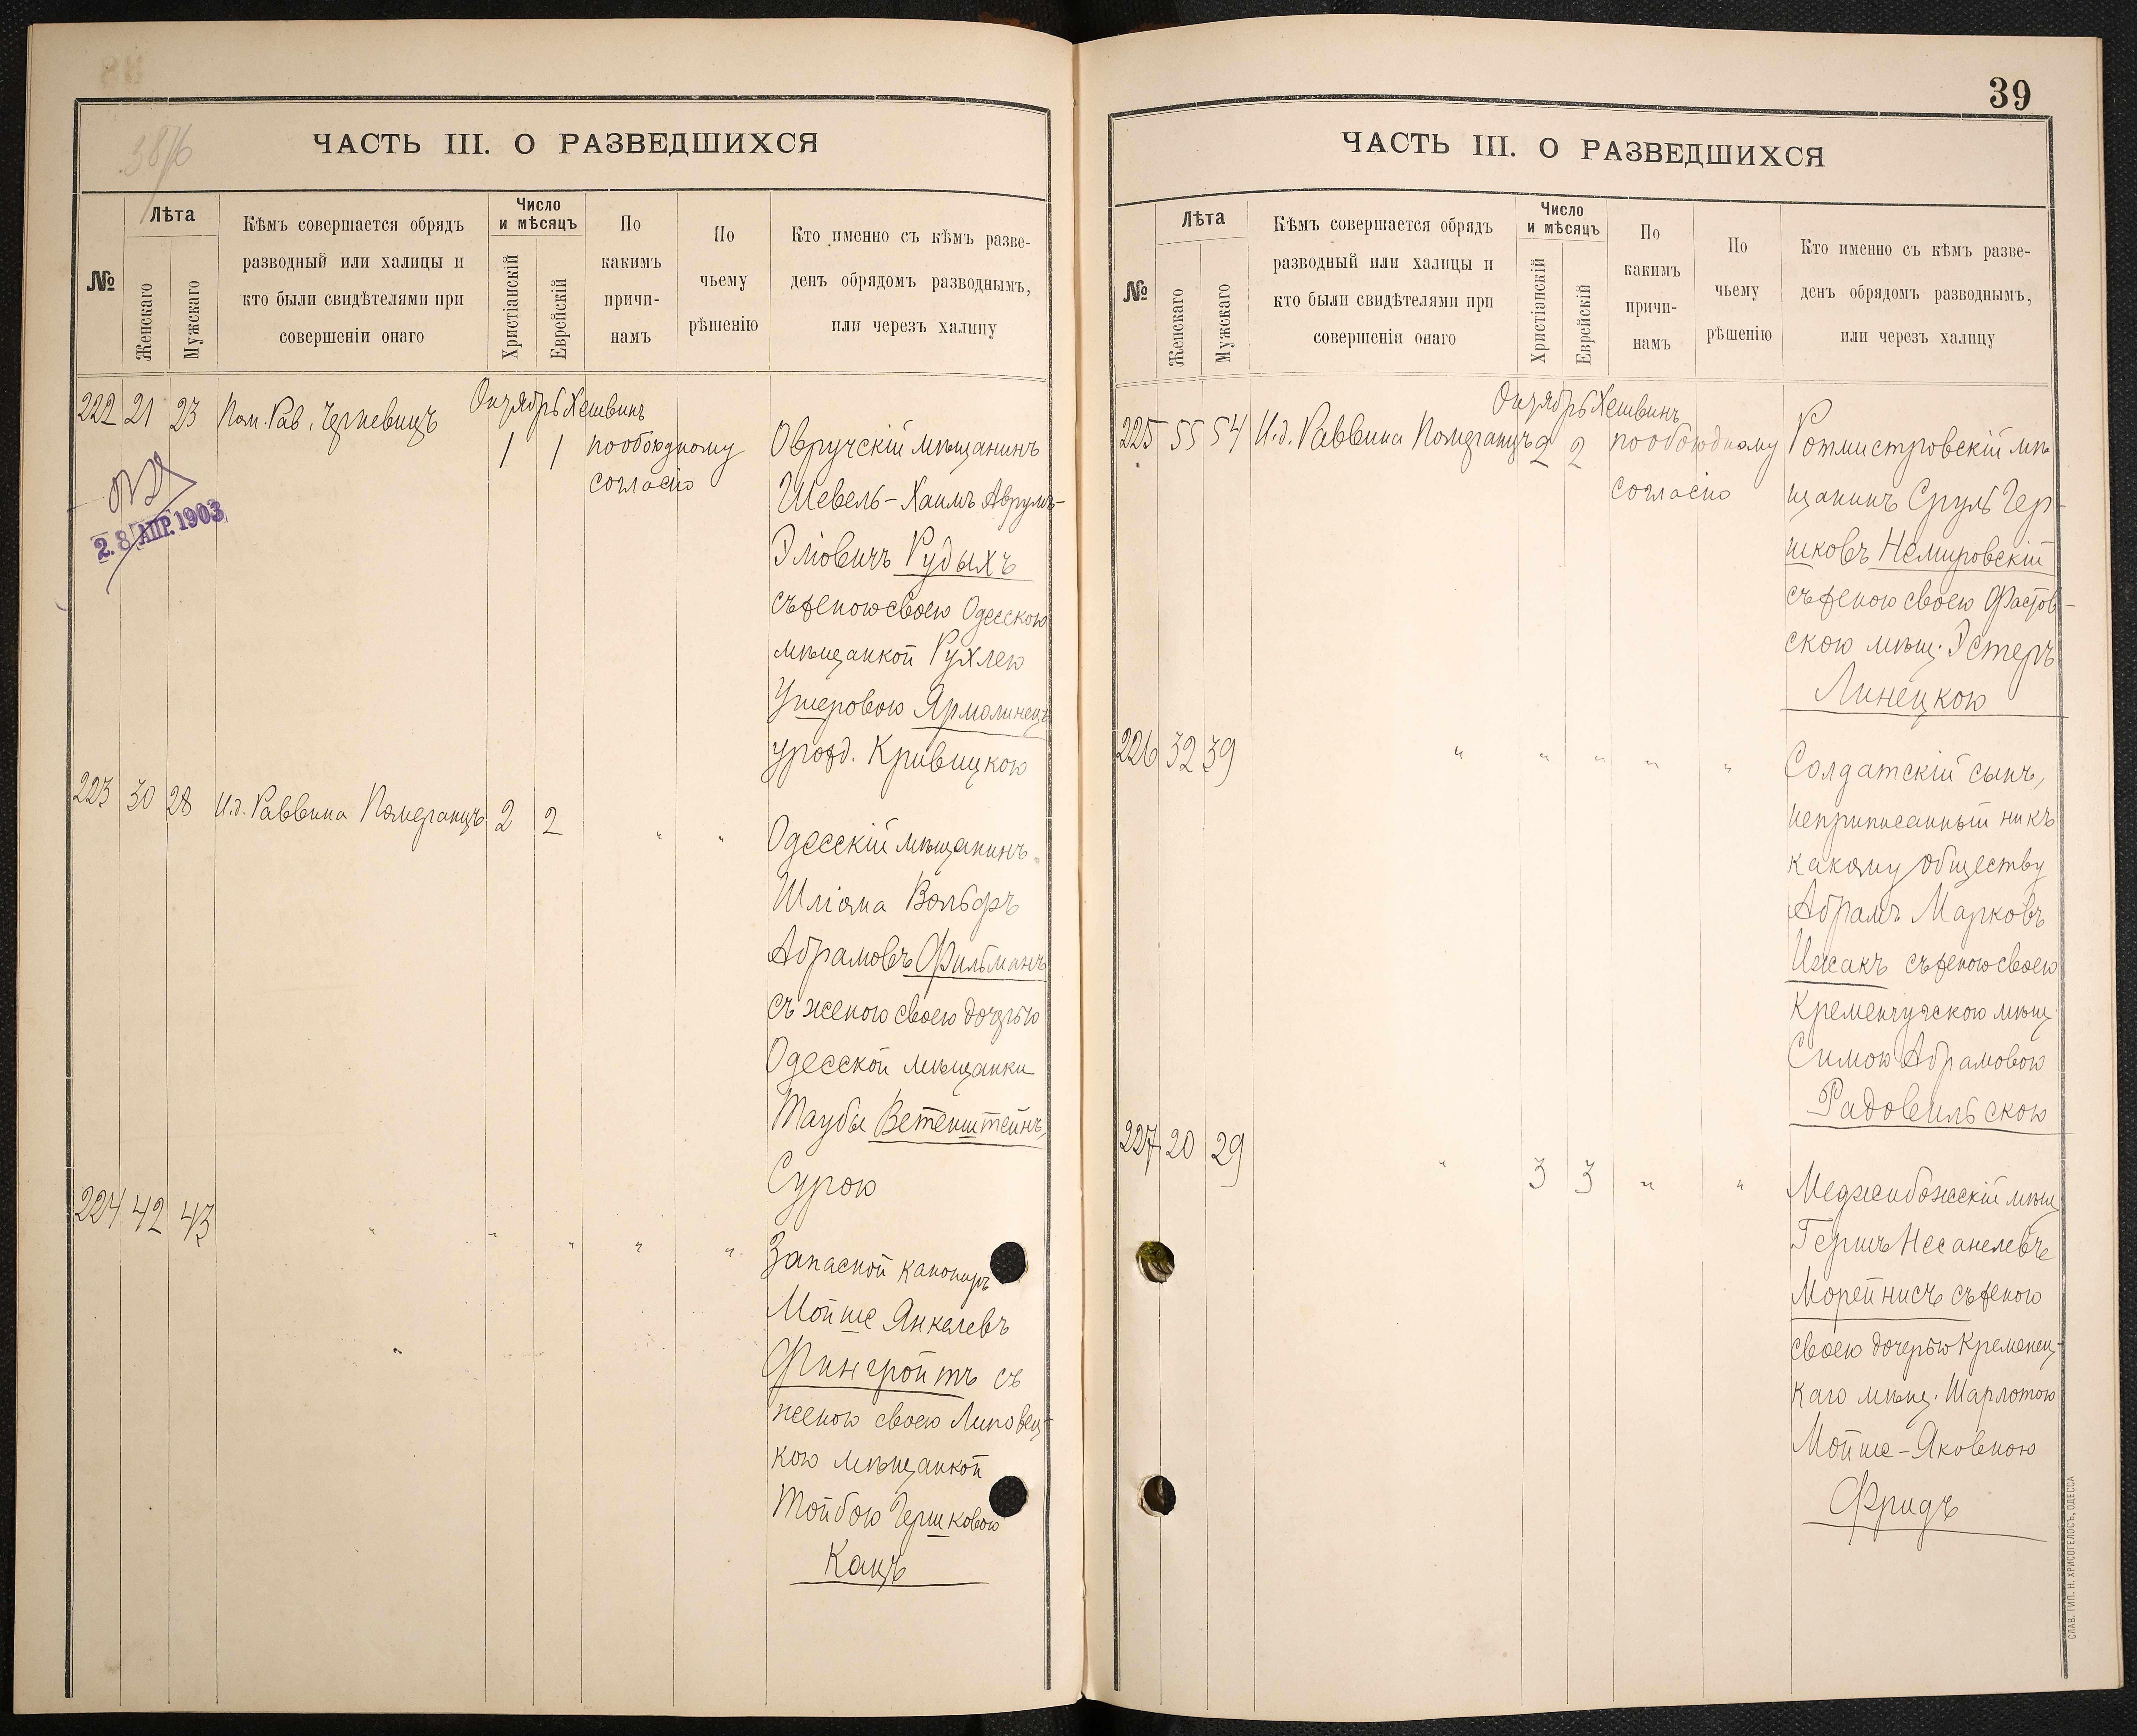 ЧАСТЬ III. О РАЗВЕДШИХСЯ
№
Лѣта
Женскаго
Мужскаго
Кѣмъ совершается обрядъ
разводный или халицы и
кто были свидѣтелями при
совершеніи онаго
Число
и мѣсяцъ
Христіанскій
Еврейскій
По
какимъ
причи-
намъ
По
чьему
рѣшенію
Кто именно съ кѣмъ разве-
денъ обрядомъ разводнымъ,
или черезъ халицу
222 21 23 Пом. Рав. Черневицъ
Октябрь Хешвинъ
1 1 по обоюдному
согласію
Овручскій мѣщанинъ
Шевель-Хаимъ Аврумъ-
Эліовичъ Рудыхъ
съ женою своею Одесскою
мѣщанкой Рухлею
Ушеровою Ярмолинецъ
урожд. Кривицкою
28 АПР. 1903
223 30 28 И.д. Раввина Померанцъ 2 2 " "
Одесскій мѣщанинъ
Шліома Вольфъ
Абрамовъ Фильманъ
съ женою своею дочерью
Одесской мѣщанки
Таубы Ветенштейнъ,
Сурою
224 42 43 " " " " "
Запасной канониръ
Мойше Янкелевъ
Фингройтъ съ
женою своею Липовец-
кою мѣщанкой
Тойбою Гершковою
Кацъ
39
ЧАСТЬ III. О РАЗВЕДШИХСЯ
№
Лѣта
Женскаго
Мужскаго
Кѣмъ совершается обрядъ
разводный или халицы и
кто были свидѣтелями при
совершеніи онаго
Число
и мѣсяцъ
Христіанскій
Еврейскій
По
какимъ
причи-
намъ
По
чьему
рѣшенію
Кто именно съ кѣмъ разве-
денъ обрядомъ разводнымъ,
или черезъ халицу
Октябрь Хешвинъ
225 55 54 И.д. Раввина Померанцъ 2 2 по обоюдному
согласію
Ротмистровскій мѣ-
щанинъ Сруль Гер-
шковъ Немировскій
съ женою своею Фастов-
скою мѣщ. Эстеръ
Линецкою
226 32 39 " " " " "
Солдатскій сынъ,
неприписанный ни къ
какому обществу
Абрамъ Марковъ
Ицакъ съ женою своею
Кременчугскою мѣщ.
Симою Абрамовою
Радовильскою
227 20 29 " 3 3 " "
Меджибожскій мѣщ.
Гершъ Несанелевъ
Морейнисъ съ женою
своею дочерью Кременец-
каго мѣщ. Шарлотою
Мойше-Яковною
Фридъ
СЛАВ. ТИП. Н. ХРИСОГЕЛОСЪ, ОДЕССА